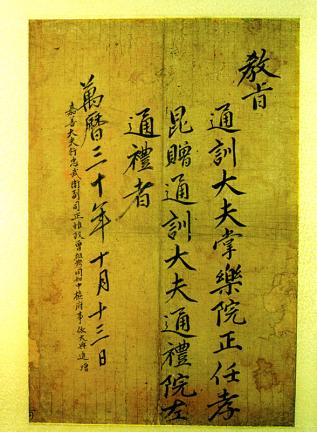 敎旨
通訓大夫掌樂院正任孝
昆贈通訓大夫通禮院左
通禮者
萬曆三十年十月十三日
嘉善大夫行忠武衛副司正惟政曾祖同知中樞府事依大典追贈